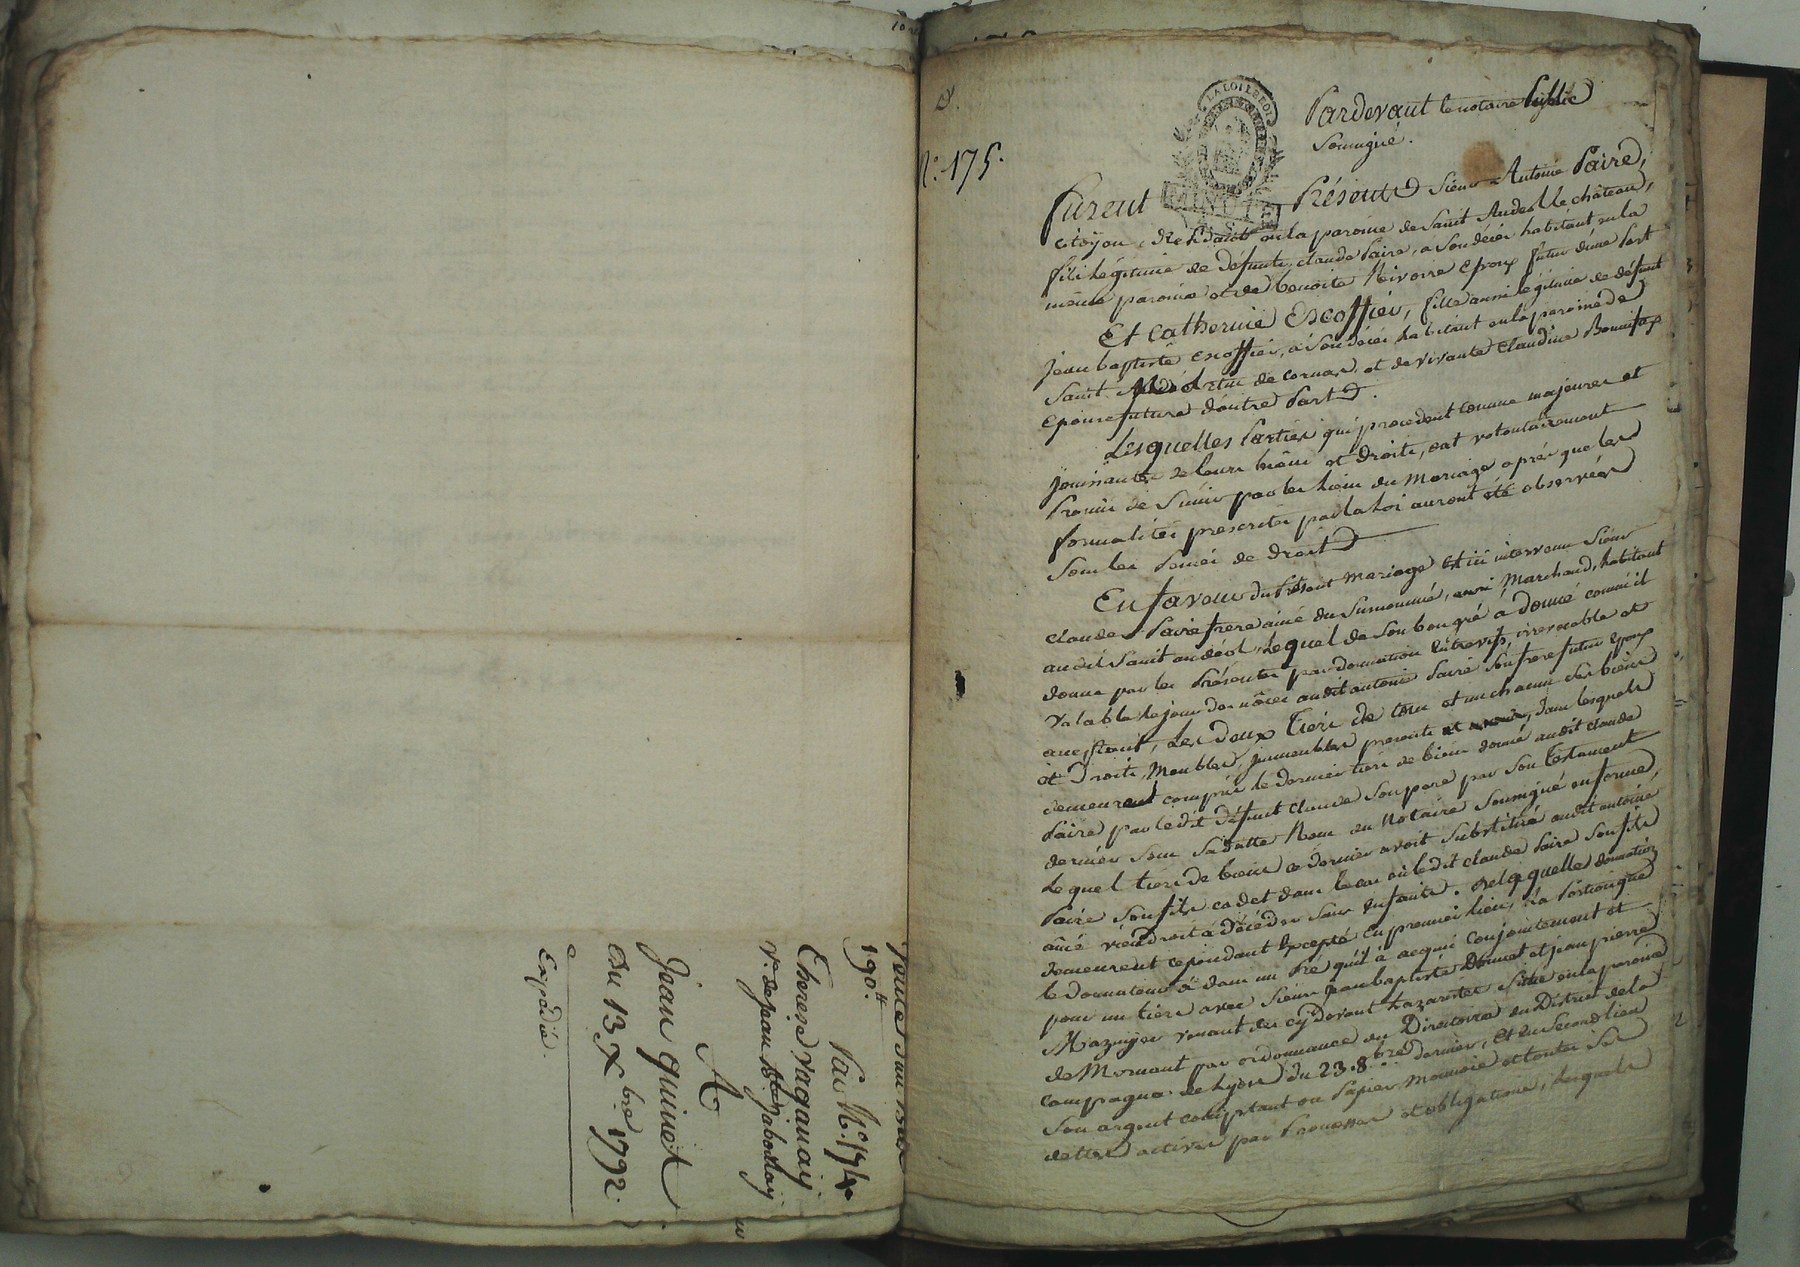 Vente d'un Bois
190.lt Par No. 194
Therese Vaganaij
Ve. de Jean Bte. jabonlay
A
Jean quinet
Du 13 Xbre 1792.
Expédié.
No. 175.
LA LOI LE ROI
MINUTE
Pardevant le notaire Public
Soussigné.
Furent Présents Sieur Antoine Paire,
citoyen, Residant en la paroisse de Saint Andeol le château,
fils légitime de défunt claude Paire, à son décès habitant en la
même paroisse et de benoite Rivoire Epoux futur d'une Part
Et Catherine Escoffier, fille aussi légitime de défunt
Jean baptiste Escoffier, à son décès habitant en la paroisse de
Saint et de vivante Claudine Bonnifox
Epouse future d'autre Part.
Lesquelles Parties qui procedent comme majeures et
jouissantes de leurs biens et droits, ont volontairement
Promis de S'unir par les Liens du Mariage après que les
formalités prescrites par la Loi auront été observées
Sous les Peines de droit
En faveur du Présent mariage Est ici intervenu Sieur
claude Paire frere ainé du Surnommé, aussi Marchand, habitant
audit Saint andéol, Lequel de Son bon gré à donné comme il
donne par les Présentes par donation Entrevifs irrevocable et
valable le jour des nôces audit antoine Paire Son frere futur Epoux
acceptant, Les Deux Tiers de tous et un chacun Ses biens
et Droits, Meubles, immeubles presents et avenir, dans lesquels
demeurent compris le dernier tiers de biens donné audit claude
Paire par ledit défunt claude Son pere par Son Testament
dernier Sous Sa datte Reçu du Notaire Soussigné en forme,
Lequel tiers de biens ce dernier avoit Substitué audit antoine
Paire Son fils cadet dans le cas où ledit claude Paire Son fils
ainé viendroit à décéder Sans Enfants. de laquelle donation
demeurent cependant Excepté En premier lieu, la Portion que
le Donateur a dans un Pré qu'il à acquis conjointement et
pour un tiers avec Sieurs Jean baptiste Donnat et jean pierre
Mazuyer venant des cy devant Lazaristes Situé en la paroisse
de Mornant par ordonnance du Directoire du District de la
Campagne de Lyon du 23. 8bre dernier, Et en Second lieu
Son argent comptant ou Papier monnoie et toutes Ses
dettes actives par Promesses et obligations, lesquels